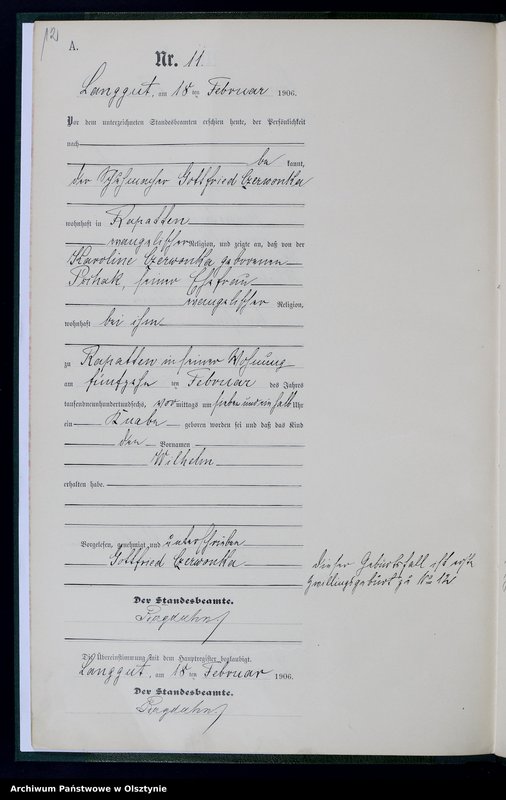 12
A.
Nr. 11.
Langgut, am 18ten Februar 1906.
Vor dem unterzeichneten Standesbeamten erschien heute, der Persönlichkeit
nach
be kannt,
der Gottfried Czerwonka
wohnhaft in Rapatten
evangelischer Religion, und zeigte an, daß von der
Karoline Czerwonka geborenen
seiner Ehefrau
evangelischer Religion,
wohnhaft bei ihm
zu Rapatten in seiner Wohnung
am fünfzehn ten Februar des Jahres
tausendneunhundertundsechs, vormittags um sieben und ein halb Uhr
ein Knabe geboren worden sei und daß das Kind
den Vornamen
Wilhelm
erhalten habe.
Vorgelesen, genehmigt und unterschrieben
Gottfried Czerwonka
dieser Geburtsfall ist erste
Zwillingsgeburt zu No 12
Der Standesbeamte.
Die Übereinstimmung mit dem Hauptregister beglaubigt.
Langgut, am 18ten Februar 1906.
Der Standesbeamte.
Archiwum Państwowe w Olsztynie